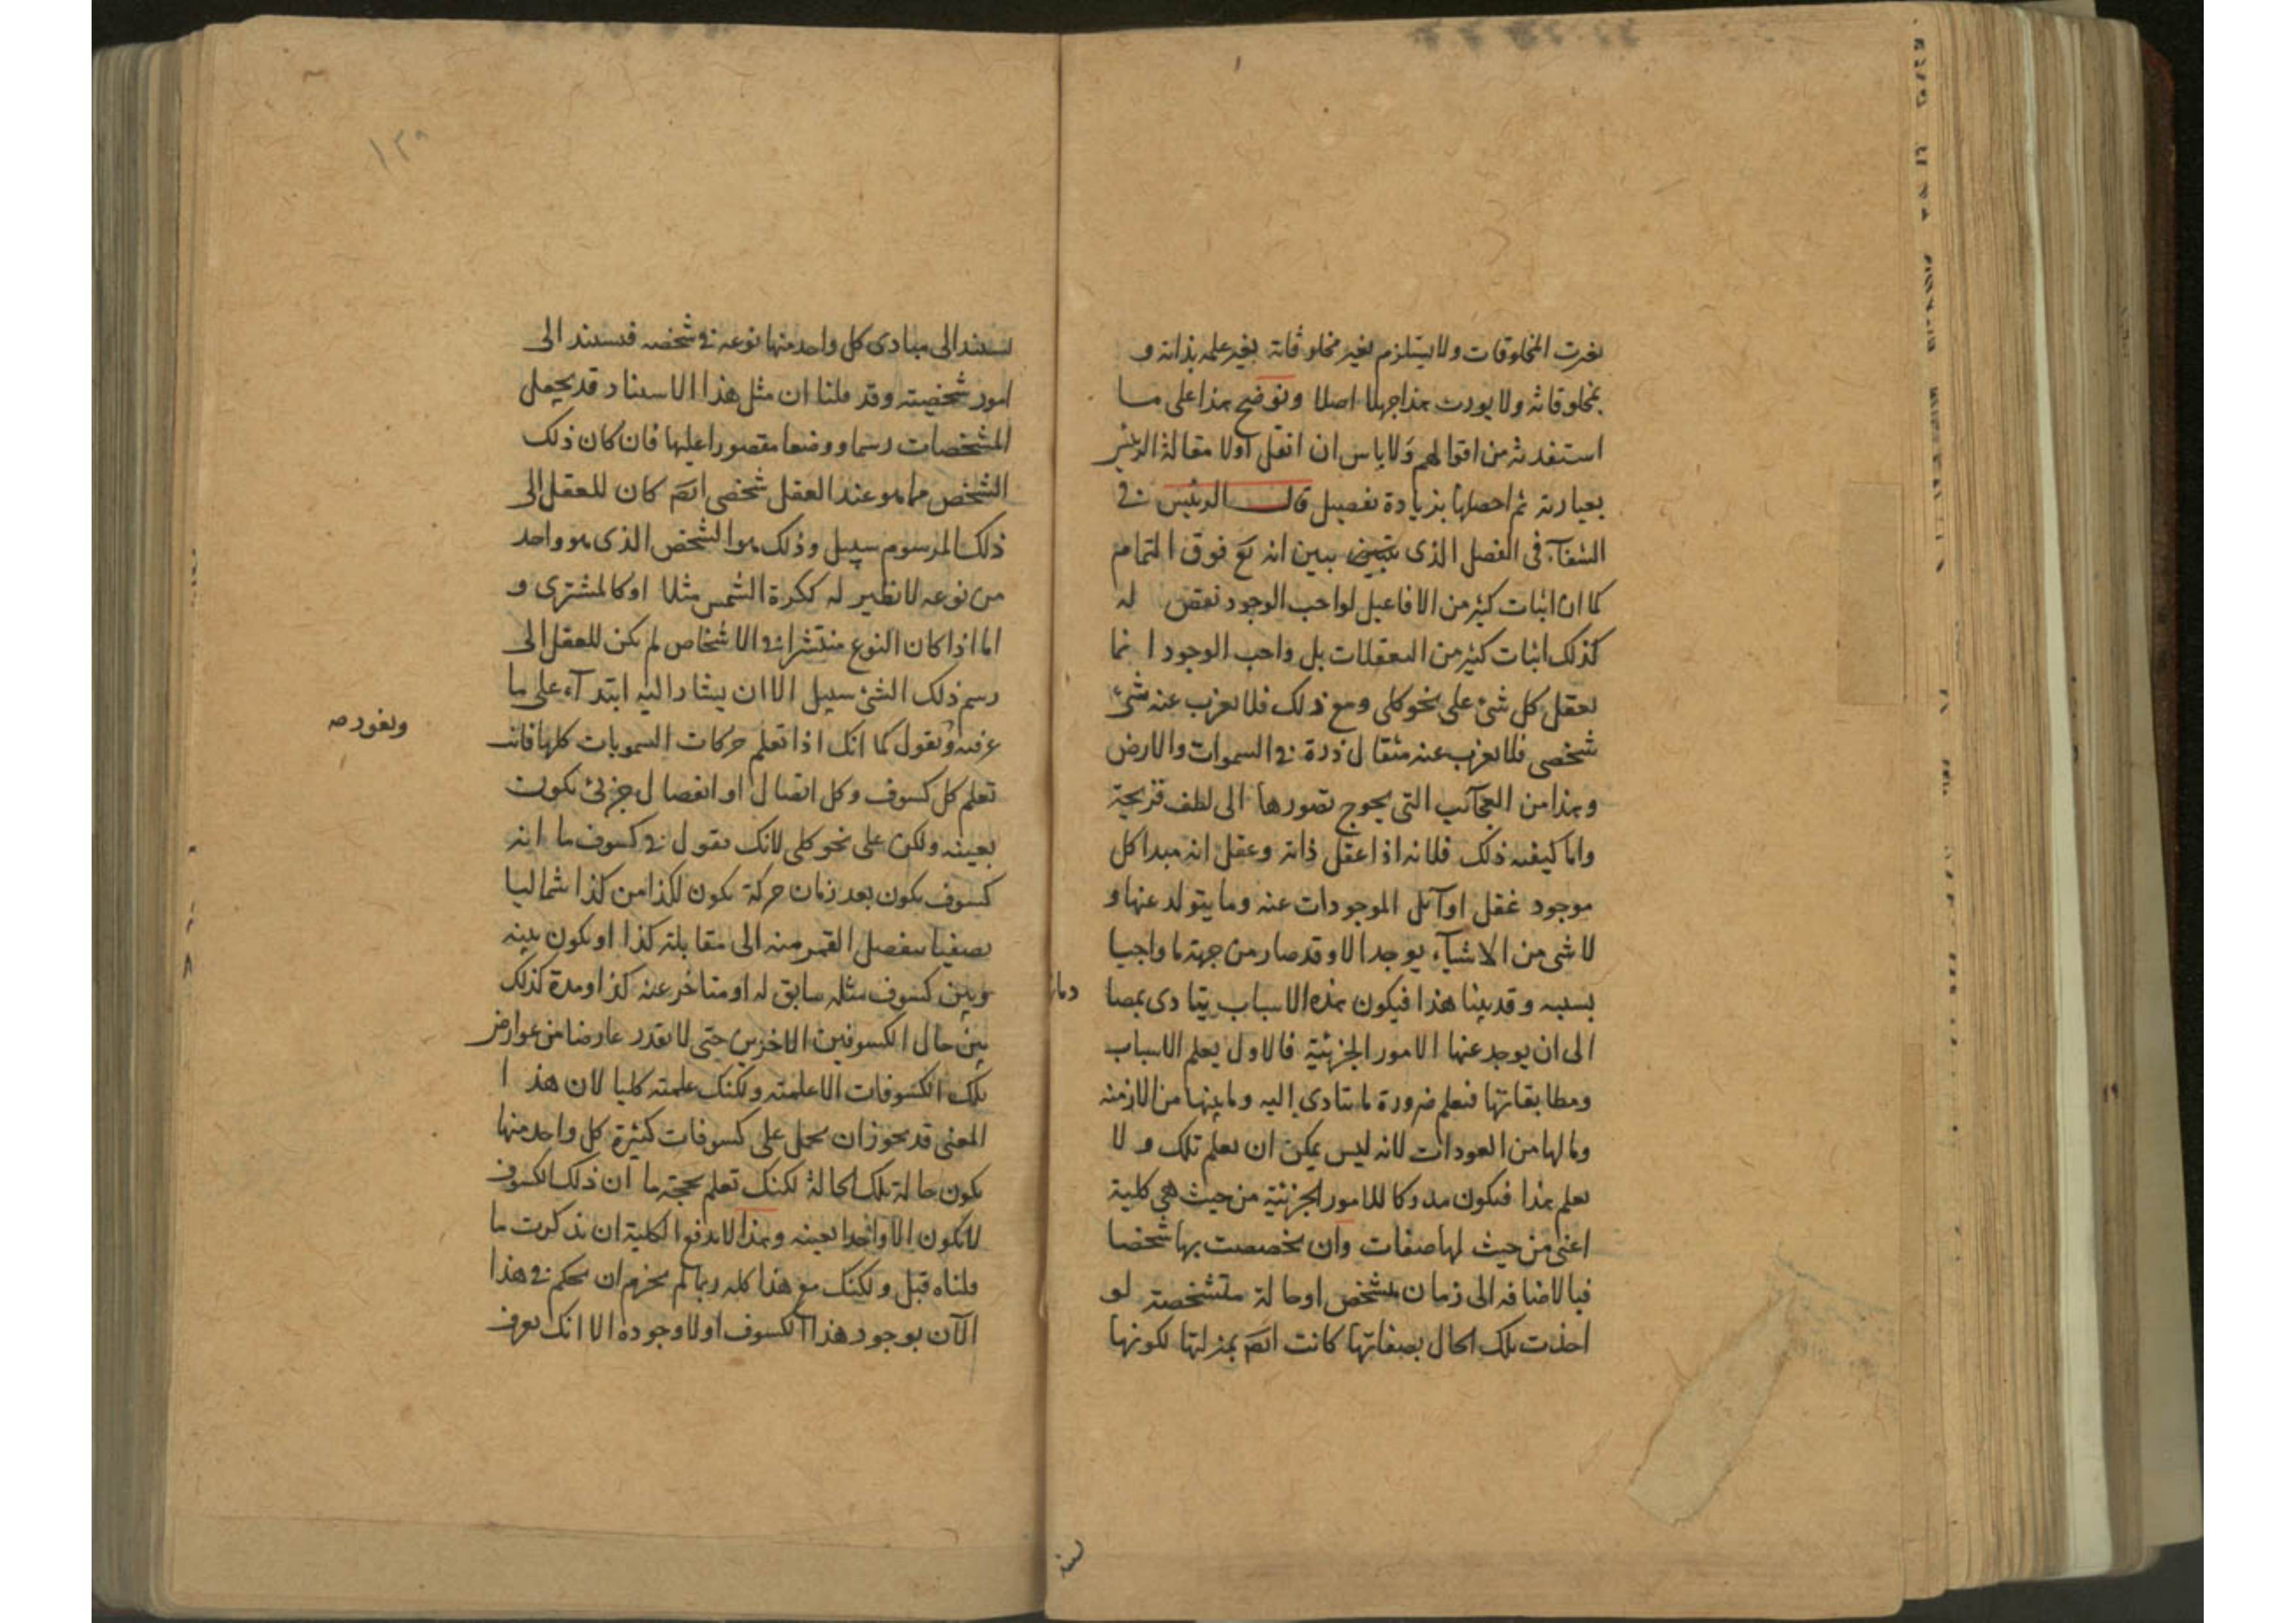 بغيرت المخلوقات ولا يستلزم بغير مخلوقاته بغير علمه بذاته و
بمخلوقاته ولا يورث هذا جهلا اصلا ونوضح هذا على ما
استفدته من اقوالهم ولا باس ان انقل اولا مقالة الرئيس
بعبارته ثم احصلها بزيادة تفصيل قال الرئيس في
الشفآء في الفصل الذي يبين انه تع فوق التمام
كما ان اثبات كثير من الافاعيل لواجب الوجود نقض له
كذلك اثبات كثير من التعقلات بل واجب الوجود انما
يعقل كل شئ على نحو كلى ومع ذلك فلا يعزب عنه شئ
شخصي فلا يعزب عنه مثقال ذرة في السموات والارض
وهذا من العجآئب التي يحوج تصورها الى لطف قريحة
واما كيفيه ذلك فلانه اذا عقل ذاته وعقل انه مبدا كل
موجود عقل اوآئل الموجودات عنه وما يتولد عنها و
لا شى من الاشيآء يوجد الا وقد صار من جهة ما واجبا
بسببه وقد بينا هذا فيكون هذه الاسباب يتادى بمصا
دما
الى ان يوجد عنها الامور الجزئية فالاول يعلم الاسباب
ومطابقاتها فيعلم ضرورة ما يتادى إليه وما بينها من الازمنه
وما لها من العودات لانه ليس يمكن ان يعلم تلك و لا
يعلم هذا فيكون مدركا للامور الجزئية من حيث هي كلية
اعنى من حيث لها صفات وان تخصصت بها شخصا
فبالاضافه الى زمان متشخص او حالة متشخصة لو
اخذت تلك الحال بصفاتها كانت ايضَ بمنزلتها لكونها
يستند الى مبادى كل واحد منها نوعه في شخصه فيستند الى
امور شخصية وقد قلنا ان مثل هذا الاستناد قد يجعل
المشخصات رسما ووصفا مقصورا عليها فان كان ذلك
الشخص مما هو عند العقل شخصي ايضَ كان للعقل الى
ذلك المرسوم سبيل وذلك هو الشخص الذى هو واحد
من نوعه لا نظير له ككرة الشمس مثلا او كالمشترى و
اما اذا كان النوع منتشرا في الاشخاص لم يكن للعقل الى
رسم ذلك الشئ سبيل الا ان يشار اليه ابتدآء على ما
عرفته ونقول كما انك اذا تعلم حركات السمويات كلها فانت
تعلم كل كسوف وكل اتصال او انفصال جزئى يكون
بعينه ولكن على نحو كلى لانك تقول في كسوف ما انه
كسوف يكون بعد زمان حركة يكون لكذا من كذا شماليا
نصفيا ينفصل القمر منه الى مقابلة كذا او يكون بينه
وبين كسوف مثله سابق له او متاخر عنه كذا ومدة كذلك
بين حال الكسوفين الاخرين حتى لا تقدر عارضا من عوارض
تلك الكسوفات الا علمته ولكنك علمته كليا لان هذا
المعنى قد يجوز ان يحمل على كسوفات كثيرة كل واحد منها
يكون حالة تلك الحالة لكنك تعلم بحجة ما ان ذلك الكسوف
لا يكون الا واحدا بعينه وهذا لا يدفع الكلية ان تذكرت ما
قلناه قبل ولكنك مع هذا كله ربما لم يجزم ان يحكم في هذا
الآن بوجود هذا الكسوف اولا وجوده الا انك تعرف